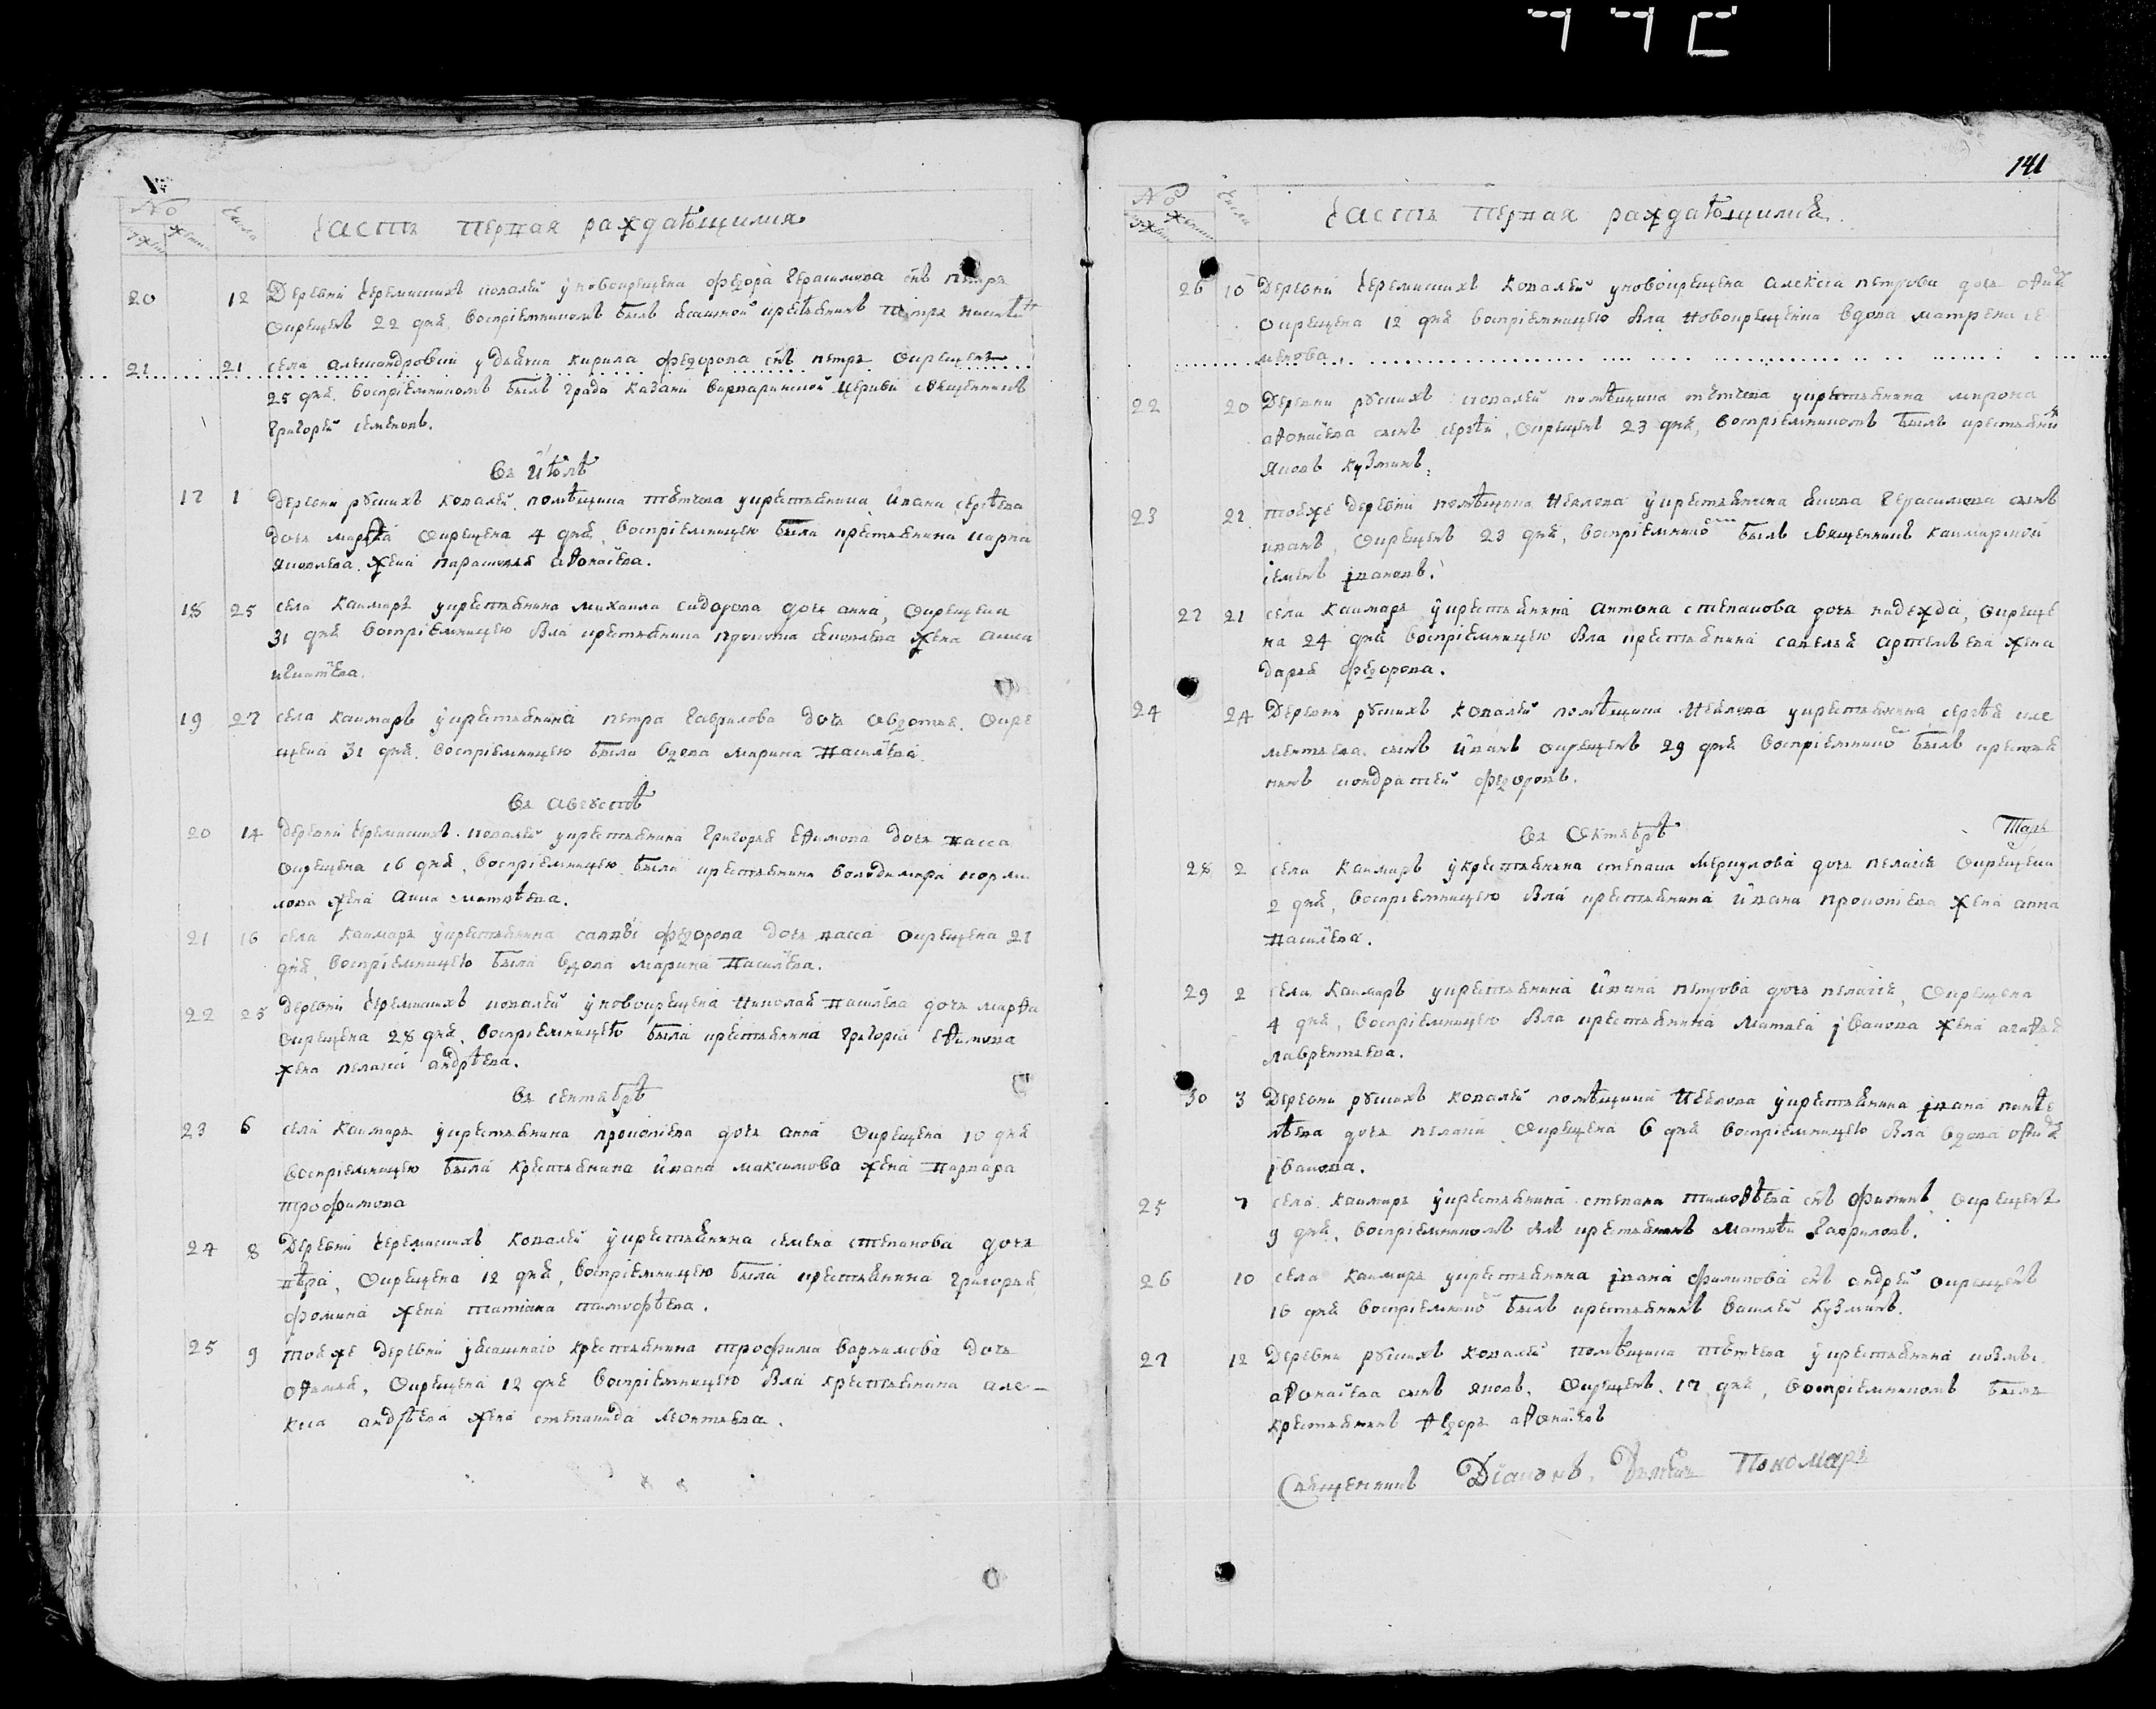 141
№ Числа
мужеск женск
Часть первая раждающимся
20 12 Деревни черемискихъ ковалей у новокрещена федора герасимова снъ петръ
окрещенъ 22 дня, воспрiемникомъ былъ ясашной крестьянинъ петръ
21 21 села александровки у дьячка кирила федорова снъ петръ окрещенъ
25 дня, воспрiемникомъ былъ града казани варваринской церкви священникъ
григорей семеновъ.
въ Июлѣ
17 1 деревни рускихъ ковалей помѣщика тѣтчева у крестьянина ивана сергѣева
дочь марѳа окрещена 4 дня, воспрiемницею была крестьянина карпа
яковлева жена парасковья аѳонасева.
18 25 села каимаръ у крестьянина михаила сидорова дочь анна, окрещена
31 дня воспрiемницею бла крестьянина прокопа яковлева жена анна
игнатева.
19 27 села каимаръ у крестьянина петра гаврилова дочь авдотья. окре
щена 31 дня. воспрiемницею была вдова марина васильева.
въ августѣ
20 14 деревни черемискихъ ковалей у крестьянина григорья еѳимова дочь васса
окрещена 16 дня, воспрiемницею была крестьянина володимира корми
лова жена анна матвѣева.
21 16 села каимаръ у крестьянина саввы федорова дочь васса окрещена 21
дня, воспрiемницею была вдова марина васильева.
22 25 деревни черемискихъ ковалей у новокрещена николая васильева дочь марѳа
окрещена 28 дня, воспрiемницею была крестьянина григорiя еѳимова
жена пелагiя андрѣева.
въ сентябрѣ
23 6 села каимаръ у крестьянина прокопiева дочь анна окрещена 10 дня
воспрiемницею была крестьянина ивана максимова жена варвара
трофимова
24 8 Деревни черемискихъ ковалей у крестьянина семена степанова дочь
вѣра, окрещена 12 дня, воспрiемницею была крестьянина григорья
фомина жена татiана тимофѣева.
25 9 тоя же деревни у ясашнаго крестьянина трофима варламова дочь
окрещена 12 дня воспрiемницею бла крестьянина але-
ксея андрѣева жена степанида леонтьева.
№ Числа
мужеск женски
Часть первая раждающимся.
26 10 Деревни черемискихъ ковалей у новокрещена алексiя петрова дочь
окрещена 12 дня воспрiемницею бла новокрещенка вдова матрена се
менова.
22 20 Деревни рускихъ ковалей помѣщика тетчева у крестьянина мирона
аѳонасева сынъ сергѣй, окрещенъ 23 дня, воспрiемникомъ былъ крестьянин
яковъ кузминъ.
23 21 тоя же деревни помѣщика неелова у крестьянина якова герасимова сынъ
иванъ, окрещенъ 23 дня, воспрiемником былъ священникъ каимарской
семенъ ивановъ.
27 21 села каимаръ у крестьянина антона степанова дочь надежда, окреще
на 24 дня воспрiемницею бла крестьянина савелья артемьева жена
дарья федорова.
24 24 Деревни рускихъ ковалей помѣщика неелова у крестьянина сергѣя кле
ментьева сынъ иванъ окрещенъ 29 дня воспрiемником былъ крестья
нинъ кондратей федоровъ.
въ Октябрѣ
28 2 села каимаръ у крестьянина степана меркулова дочь пелагiя окрещена
2 дня, воспрiемницею бла крестьянина ивана прокопiева жена анна
васильева.
29 2 села каимаръ у крестьянина ивана петрова дочь пелагiя, окрещена
4 дня, воспрiемницею бла крестьянина матвея iванова жена агаѳья
лаврентьева.
30 3 Деревни рускихъ ковалей помѣщика неелова у крестьянина ивана панте
лѣева дочь пелагiя окрещена 6 дня воспрiемницею бла вдова
iванова.
25 7 села каимаръ у крестьянина степана тимоѳѣева снъ филипъ окрещенъ
9 дня, воспрiемникомъ блъ крестьянинъ матвѣй гавриловъ.
26 10 села каимаръ у крестьянина ивана филипова снъ андрей окрещенъ
16 дня воспрiемником былъ крестьянинъ василей кузминъ.
27 12 Деревни рускихъ ковалей помѣщика тѣтчева у крестьянина козмы
аѳонасева сынъ яковъ, окрещенъ 17 дня, воспрiемникомъ былъ
крестьянинъ ѳедоръ аѳонасевъ
Священникъ Дiаконъ, Дьячекъ Пономарь